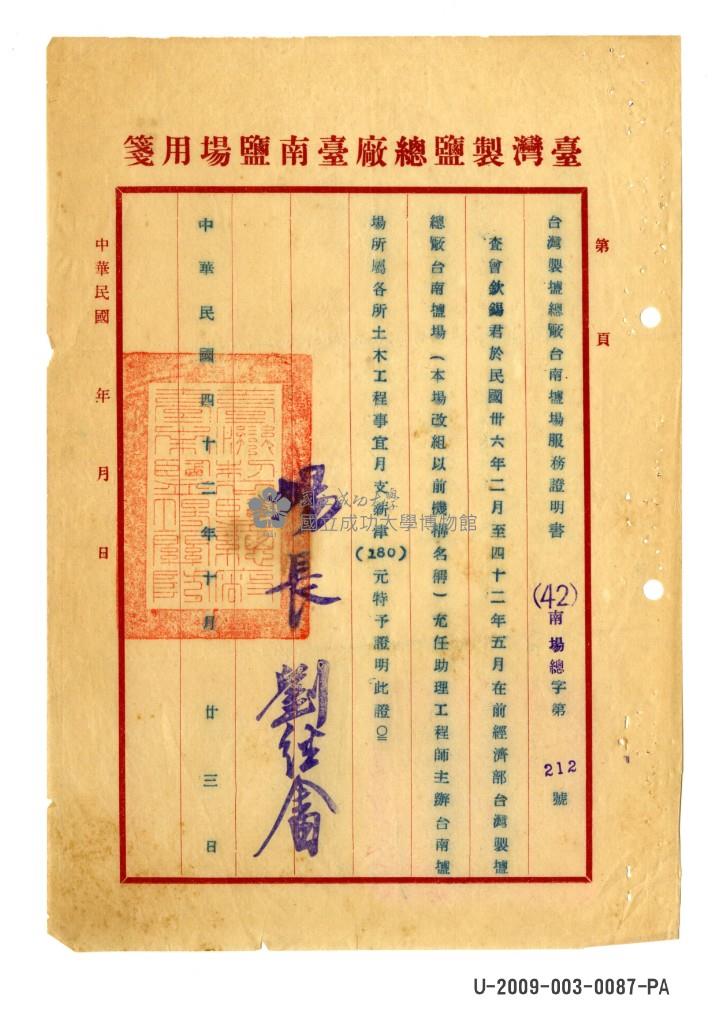 臺灣製鹽總廠臺南鹽場用箋
第 頁
台灣製塩總廠台南塩場服務證明書 (42)南場總字第 212 號
查曾欽錫君於民國卅六年二月至四十二年五月在前經濟部台灣製塩
總廠台南塩場（本場改組以前機構名稱）充任助理工程師主辦台南塩
場所屬各所土木工程事宜月支薪津(280)元特予證明此證
場長 劉
中華民國四十二年十月廿三日
中華民國 年 月 日
國立成功大學
國立成功大學博物館
U-2009-003-0087-PA